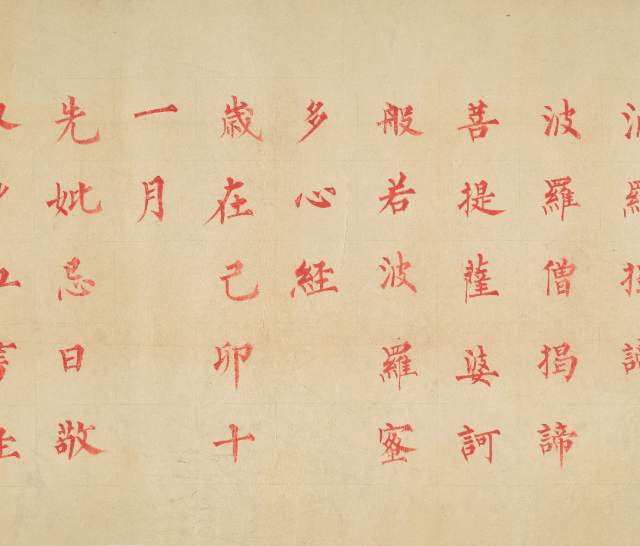 波羅揭諦
波羅僧揭諦
菩提薩婆訶
般若波羅蜜
多心経
歳在己卯十
一月
先妣忌日敬